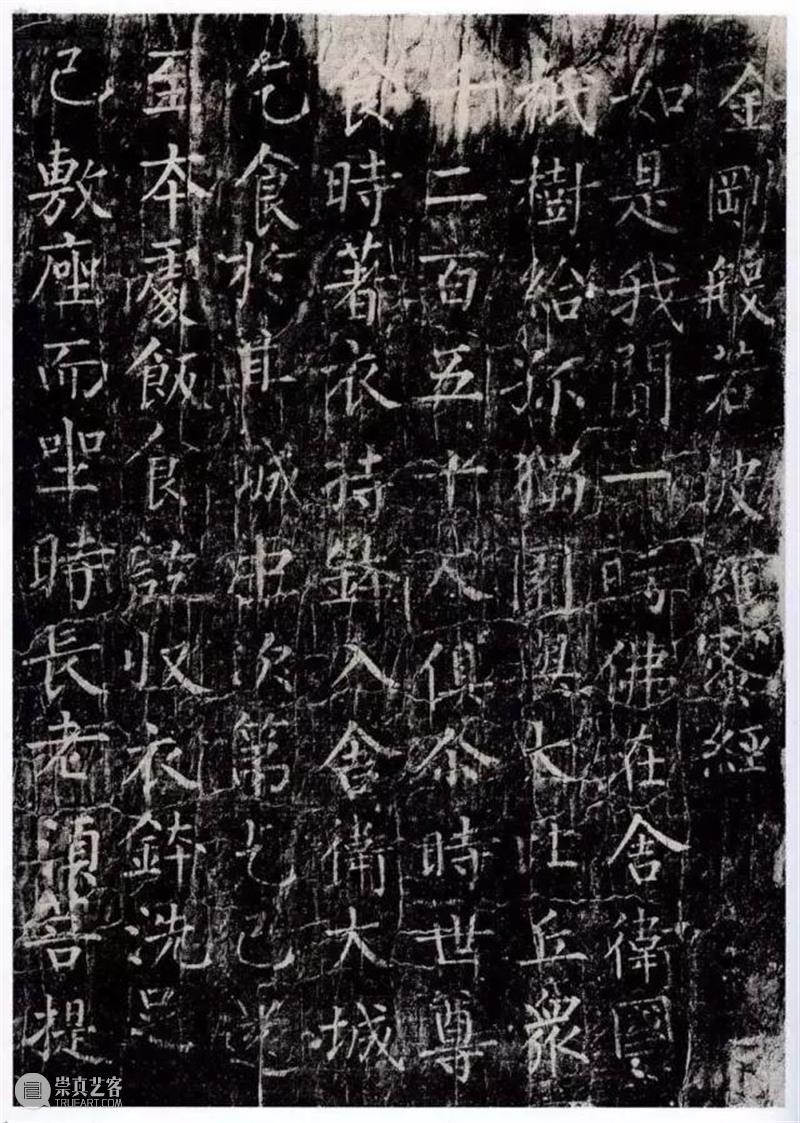 金剛般若波羅蜜經
如是我聞一時佛在舍衛國
祇樹給孤獨園與大比丘眾
千二百五十人俱尒時世尊
食時著衣持鉢入舍衛大城
乞食於其城中次第乞已還
至本處飯食訖收衣鉢洗足
已敷座而坐時長老須菩提
崇真艺客
TRUEART.COM